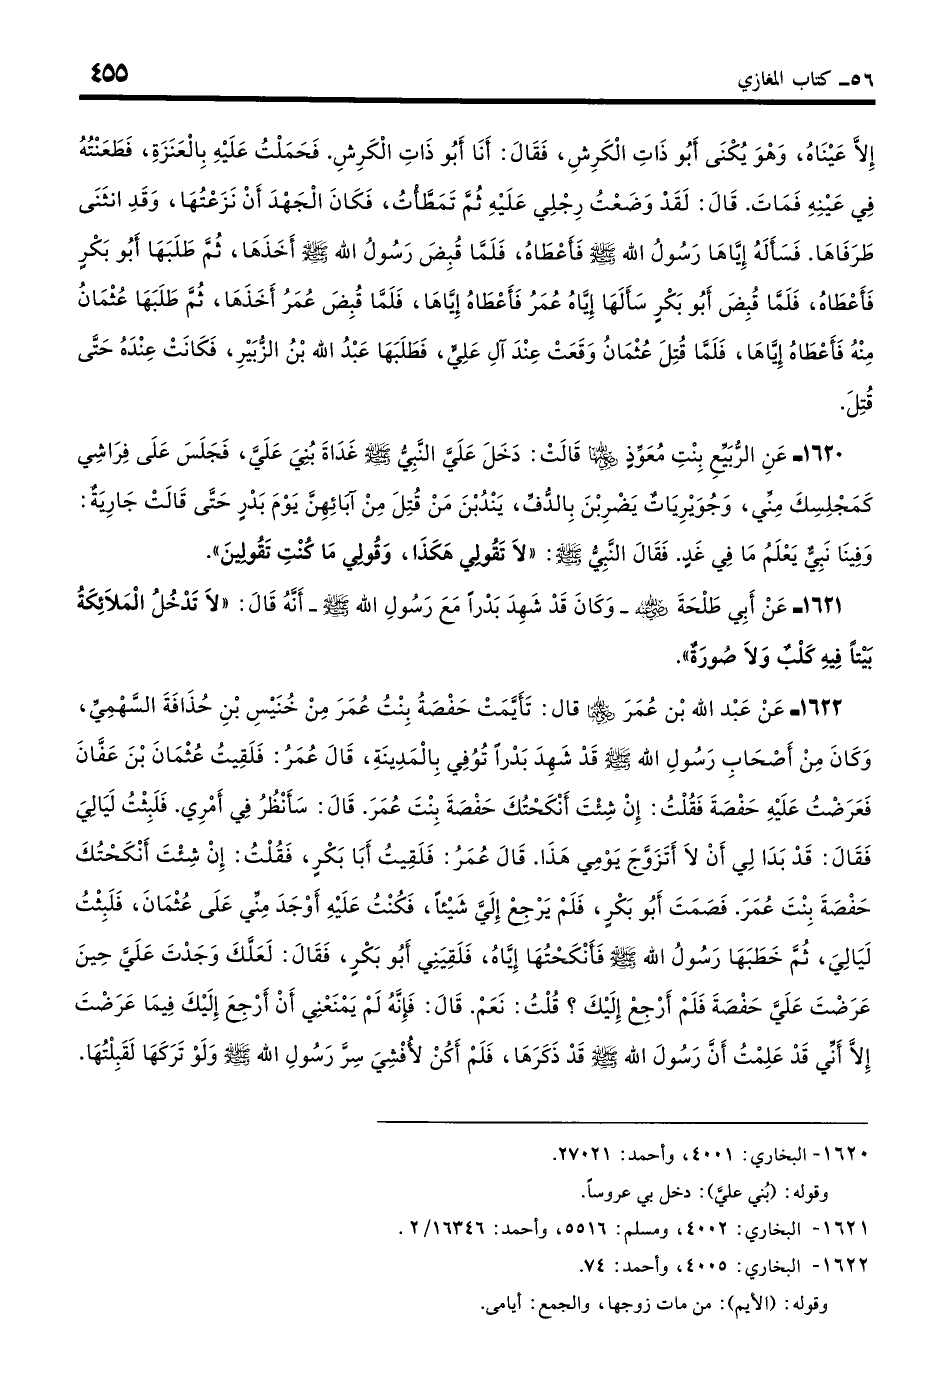 ٥٦ـ كتاب المغازي ٤٥٥
إِلاَّ عَيْنَاهُ، وَهْوَ يُكْنَى أَبُو ذَاتِ الْكَرِشِ، فَقَالَ: أَنَا أَبُو ذَاتِ الْكَرِشِ. فَحَمَلْتُ عَلَيْهِ بِالْعَنَزَةِ، فَطَعَنْتُهُ
فِي عَيْنِهِ فَمَاتَ. قَالَ: لَقَدْ وَضَعْتُ رِجْلِي عَلَيْهِ ثُمَّ تَمَطَّأْتُ، فَكَانَ الْجَهْدَ أَنْ نَزَعْتُهَا، وَقَدِ انثَنَى
طَرَفَاهَا. فَسَأَلَهُ إِيَّاهَا رَسُولُ الله ﷺ فَأَعْطَاهُ، فَلَمَّا قُبِضَ رَسُولُ الله ﷺ أَخَذَهَا، ثُمَّ طَلَبَهَا أَبُو بَكْرٍ
فَأَعْطَاهُ، فَلَمَّا قُبِضَ أَبُو بَكْرٍ سَأَلَهَا إِيَّاهُ عُمَرُ فَأَعْطَاهُ إِيَّاهَا، فَلَمَّا قُبِضَ عُمَرُ أَخَذَهَا، ثُمَّ طَلَبَهَا عُثْمَانُ
مِنْهُ فَأَعْطَاهُ إِيَّاهَا، فَلَمَّا قُتِلَ عُثْمَانُ وَقَعَتْ عِنْدَ آلِ عَلِيٍّ، فَطَلَبَهَا عَبْدُ الله بْنُ الزُّبَيْرِ، فَكَانَتْ عِنْدَهُ حَتَّى
قُتِلَ.
١٦٢٠ـ عَنِ الرُّبَيِّعِ بِنْتِ مُعَوِّذٍ رضي الله عنها قَالَتْ: دَخَلَ عَلَيَّ النَّبِيُّ ﷺ غَدَاةَ بُنِيَ عَلَيَّ، فَجَلَسَ عَلَى فِرَاشِي
كَمَجْلِسِكَ مِنِّي، وَجُوَيْرِيَاتٌ يَضْرِبْنَ بِالدُّفِّ، يَنْدُبْنَ مَنْ قُتِلَ مِنْ آبَائِهِنَّ يَوْمَ بَدْرٍ حَتَّى قَالَتْ جَارِيَةٌ:
وَفِينَا نَبِيٌّ يَعْلَمُ مَا فِي غَدٍ. فَقَالَ النَّبِيُّ ﷺ: «لاَ تَقُولِي هَكَذَا، وَقُولِي مَا كُنْتِ تَقُولِينَ».
١٦٢١ـ عَنْ أَبِي طَلْحَةَ رضي الله عنه ـ وَكَانَ قَدْ شَهِدَ بَدْراً مَعَ رَسُولِ الله ﷺ ـ أَنَّهُ قَالَ: «لاَ تَدْخُلُ الْمَلاَئِكَةُ
بَيْتاً فِيهِ كَلْبٌ وَلاَ صُورَةٌ».
١٦٢٢ـ عَنْ عَبْد الله بْن عُمَرَ رضي الله عنهما قال: تَأَيَّمَتْ حَفْصَةُ بِنْتُ عُمَرَ مِنْ خُنَيْسِ بْنِ حُذَافَةَ السَّهْمِيِّ،
وَكَانَ مِنْ أَصْحَابِ رَسُولِ الله ﷺ قَدْ شَهِدَ بَدْراً تُوُفِي بِالْمَدِينَةِ، قَالَ عُمَرُ: فَلَقِيتُ عُثْمَانَ بْنَ عَفَّانَ
فَعَرَضْتُ عَلَيْهِ حَفْصَةَ فَقُلْتُ: إِنْ شِئْتَ أَنْكَحْتُكَ حَفْصَةَ بِنْتَ عُمَرَ. قَالَ: سَأَنْظُرُ فِي أَمْرِي. فَلَبِثْتُ لَيَالِيَ
فَقَالَ: قَدْ بَدَا لِي أَنْ لاَ أَتَزَوَّجَ يَوْمِي هَذَا. قَالَ عُمَرُ: فَلَقِيتُ أَبَا بَكْرٍ، فَقُلْتُ: إِنْ شِئْتَ أَنْكَحْتُكَ
حَفْصَةَ بِنْتَ عُمَرَ. فَصَمَتَ أَبُو بَكْرٍ، فَلَمْ يَرْجِعْ إِلَيَّ شَيْئاً، فَكُنْتُ عَلَيْهِ أَوْجَدَ مِنِّي عَلَى عُثْمَانَ، فَلَبِثْتُ
لَيَالِيَ، ثُمَّ خَطَبَهَا رَسُولُ الله ﷺ فَأَنْكَحْتُهَا إِيَّاهُ، فَلَقِيَنِي أَبُو بَكْرٍ، فَقَالَ: لَعَلَّكَ وَجَدْتَ عَلَيَّ حِينَ
عَرَضْتَ عَلَيَّ حَفْصَةَ فَلَمْ أَرْجِعْ إِلَيْكَ؟ قُلْتُ: نَعَمْ. قَالَ: فَإِنَّهُ لَمْ يَمْنَعْنِي أَنْ أَرْجِعَ إِلَيْكَ فِيمَا عَرَضْتَ
إِلاَّ أَنِّي قَدْ عَلِمْتُ أَنَّ رَسُولَ الله ﷺ قَدْ ذَكَرَهَا، فَلَمْ أَكُنْ لأُفْشِيَ سِرَّ رَسُولِ الله ﷺ وَلَوْ تَرَكَهَا لَقَبِلْتُهَا.
١٦٢٠- البخاري: ٤٠٠١، وأحمد: ٢٧٠٢١.
وقوله: (بُني عليَّ): دخل بي عروساً.
١٦٢١- البخاري: ٤٠٠٢، ومسلم: ٥٥١٦، وأحمد: ٢/١٦٣٤٦.
١٦٢٢- البخاري: ٤٠٠٥، وأحمد: ٧٤.
وقوله: (الأيم): من مات زوجها، والجمع: أيامى.